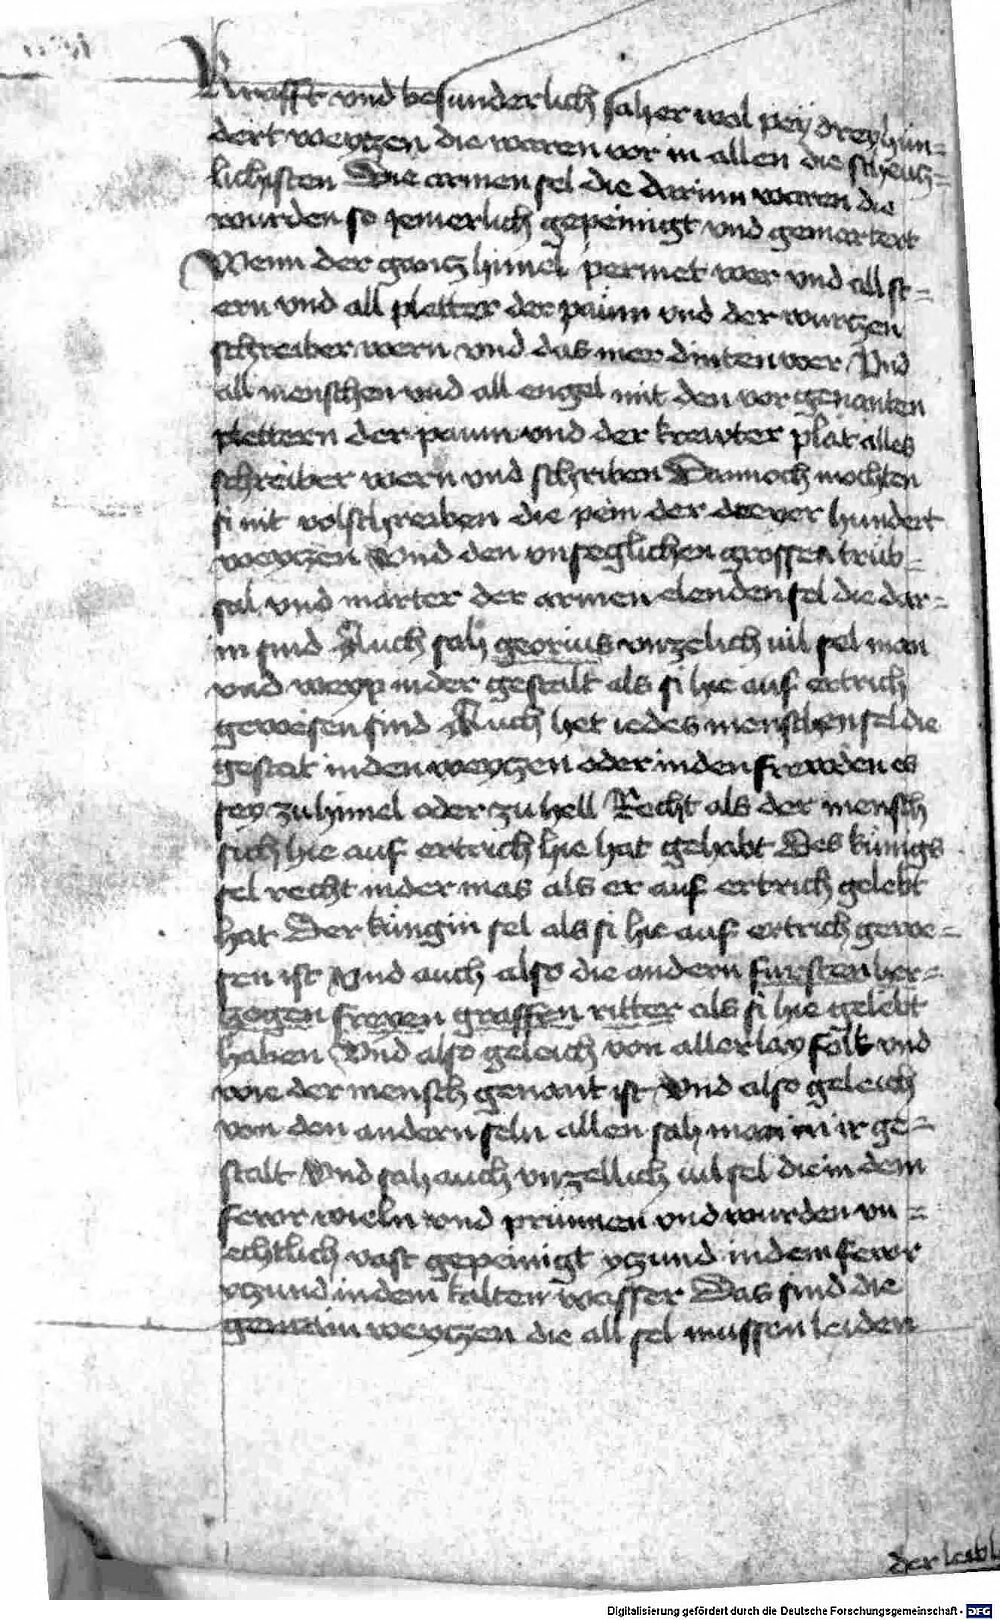 Krafft vnd besunderlich sah er wol pey drey hun=
dert weytzen die waren vor in allen die scheutz=
lichisten Die armen sel die darinn waren die
wurden so jemerlich gepeinigt vnd gemartert
Wenn der gantz himel permet wer vnd all st=
ern vnd all pletter der paum vnd der wurtzen
schreiber wern vnd das mer dinten wer Vnd
all menschen vnd all engel mit den vor genanten
plettern der paum vnd der krewter plat alles
schreiber wern vnd schriben Dannoch mochten
si nit volschreiben die pein der dreyer hundert
weytzen Vnd den vnseglichen grossen trüb=
sal vnd marter der armen elenden sel die dar=
in sind Auch sah georius vnzelich vil sel man
vnd weyp in der gestalt als si hie auf ertrich
gewesen sind Auch het iedes menschen sel die
gestat in den weytzen oder in den frewden es
sey zu himel oder zu hell Recht als der mensch
sich hie auf ertrich hie hat gehabt Des künigs
sel recht in der mas als er auf ertrich gelebt
hat Der küngin sel als si hie auf ertrich gewe=
sen ist Vnd auch also die andern fursten her=
zogen freyen graffen ritter als si hie gelebt
haben Vnd also geleich von allerlay folk vnd
wie der mensch genant ist Vnd also geleich
von den andern seln allen sah man in ir ge=
stalt Vnd sah auch vnzellich vil sel die in dem
fewr wieln vnd prünnen vnd wurden vn=
echtlich vast gepeinigt ytzund in dem fewr
ytzund in dem kalten wasser Das sind die
gemain weytzen die all sel mussen leiden
der leibl
Digitalisierung gefördert durch die Deutsche Forschungsgemeinschaft - DFG